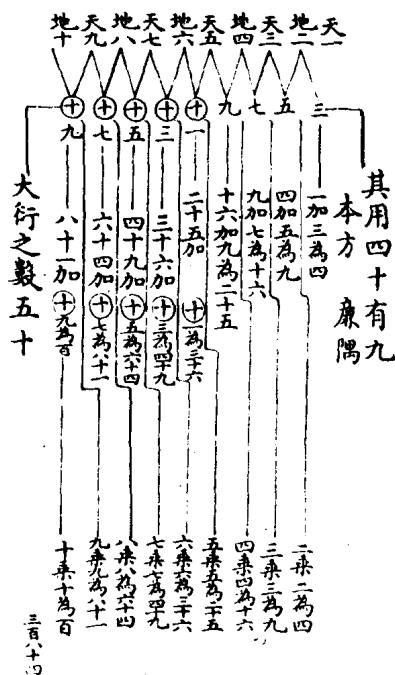 天一
地二
天三
地四
天五
地六
天七
地八
天九
地十
三
五
七
九
十一
十三
十五
十七
十九
其用四十有九
本方 廉隅
一加三為四
四加五為九
九加七為十六
十六加九為二十五
二十五加十一為三十六
三十六加十三為四十九
四十九加十五為六十四
六十四加十七為八十一
八十一加十九為百
大衍之數五十
二乘二為四
三乘三為九
四乘四為十六
五乘五為二十五
六乘六為三十六
七乘七為四十九
八乘八為六十四
九乘九為八十一
十乘十為百
三百八十四